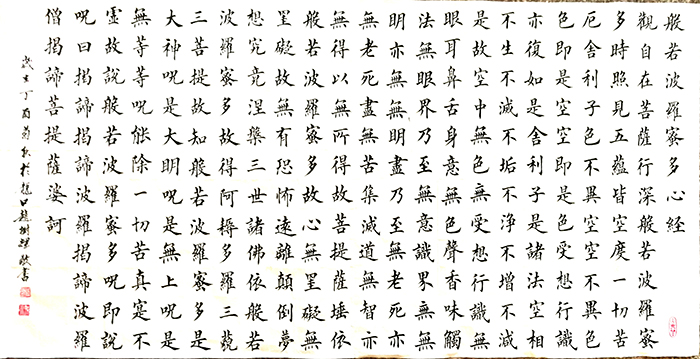 般若波羅蜜多心經
觀自在菩薩行深般若波羅蜜
多時照見五蘊皆空度一切苦
厄舍利子色不異空空不異色
色即是空空即是色受想行識
亦復如是舍利子是諸法空相
不生不滅不垢不淨不增不減
是故空中無色無受想行識無
眼耳鼻舌身意無色聲香味觸
法無眼界乃至無意識界無無
明亦無無明盡乃至無老死亦
無老死盡無苦集滅道無智亦
無得以無所得故菩提薩埵依
般若波羅蜜多故心無罣礙無
罣礙故無有恐怖遠離顛倒夢
想究竟涅槃三世諸佛依般若
波羅蜜多故得阿耨多羅三藐
三菩提故知般若波羅蜜多是
大神呪是大明呪是無上呪是
無等等呪能除一切苦真實不
虛故說般若波羅蜜多呪即說
呪曰揭諦揭諦波羅揭諦波羅
僧揭諦菩提薩婆訶
丁酉菊秋於龍口趙樹敬書